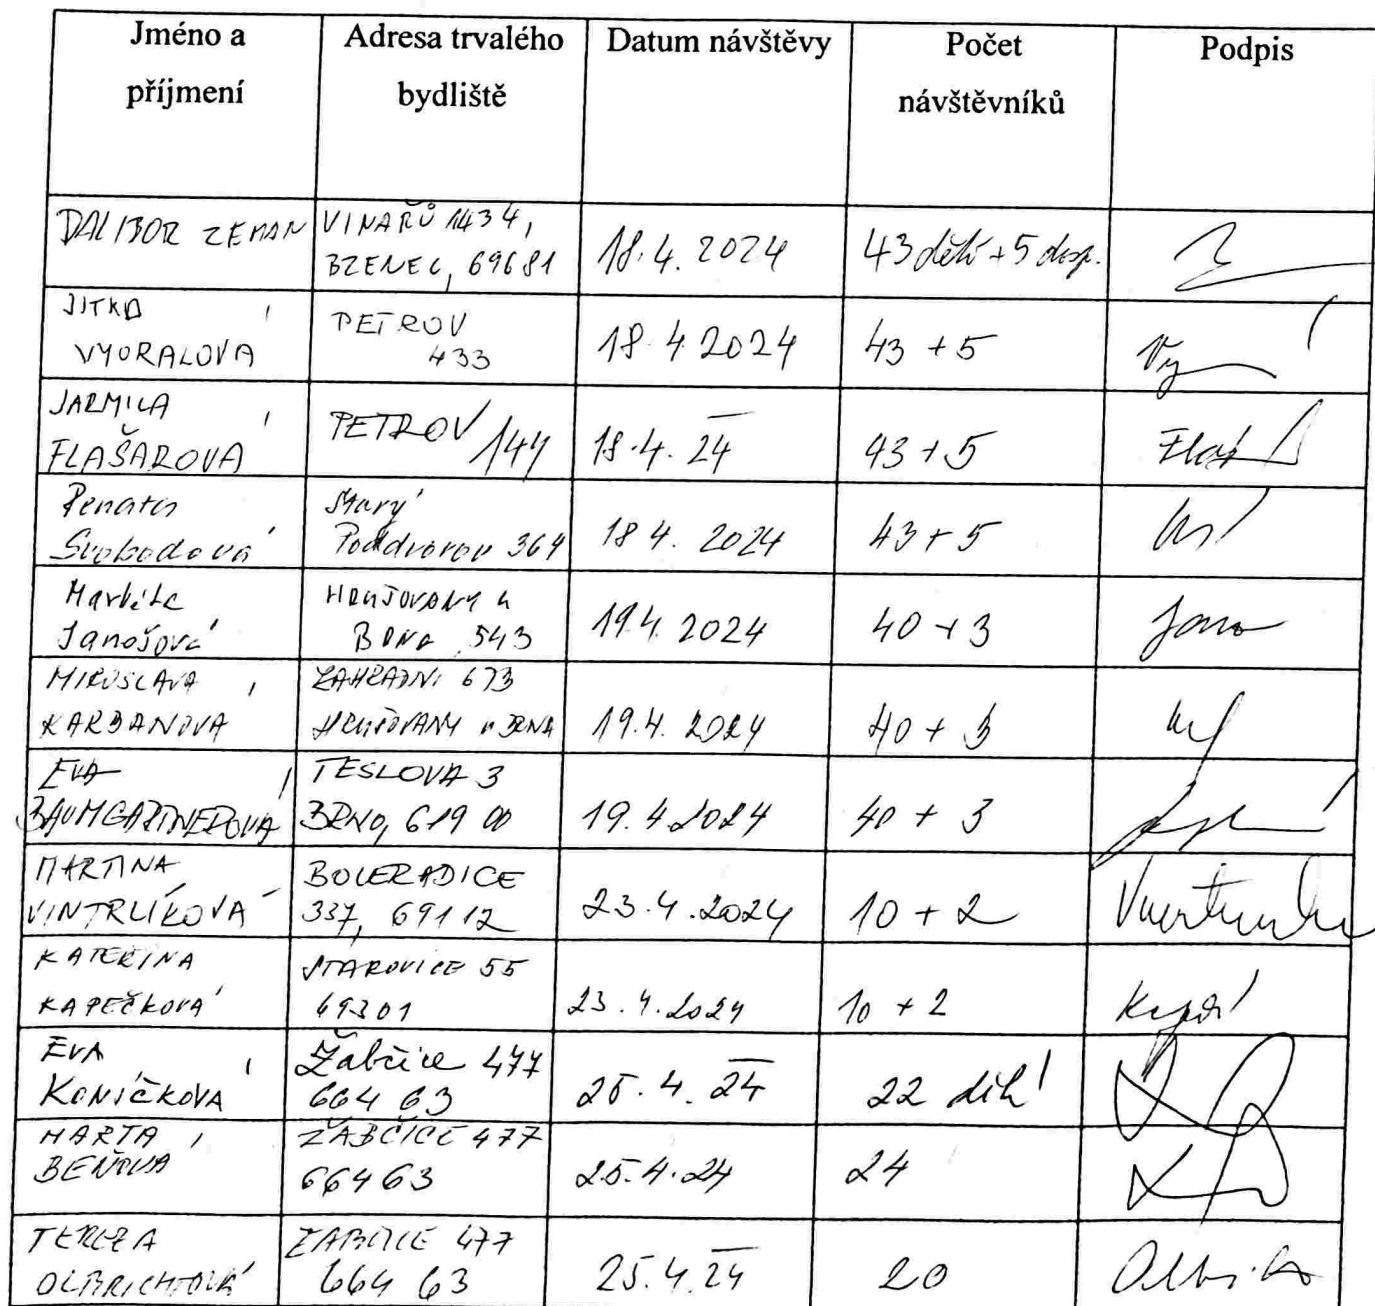 Jméno a příjmení
Adresa trvalého bydliště
Datum návštěvy
Počet návštěvníků
Podpis
DALIBOR ZEMAN
VINAŘŮ 1434,
BZENEC, 69681
18.4. 2024
43 dětí + 5 dosp.
JITKA
VYORALOVÁ
PETROV
433
18.4 2024
43 + 5
JARMILA
FLAŠAROVÁ
PETROV 144
18.4. 24
43 + 5
Renata
Svobodová
Starý
Poddvorov 364
18 4. 2024
43 + 5
Markéta
Janošová
HRUŠOVANY u
BRNA 543
19.4. 2024
40 + 3
MIROSLAVA
KARBANOVÁ
ZAHRADNÍ 673
HRUŠOVANY u BRNA
19.4. 2024
40 + 3
EVA
BAUMGARTNEROVÁ
TESLOVA 3
BRNO, 619 00
19.4 2024
40 + 3
MARTINA
VINTRLÍKOVÁ
BOLERADICE
337, 69112
23.4.2024
10 + 2
KATEŘINA
KAPEČKOVÁ
STAROVICE 55
69301
23.4.2024
10 + 2
EVA
KONÍČKOVÁ
Žabčice 477
664 63
25.4.24
22 dětí
MARTA
BEŇOVÁ
ŽABČICE 477
664 63
25.4.24
24
TEREZA
OLBRICHTOVÁ
ŽABČICE 477
664 63
25.4.24
20